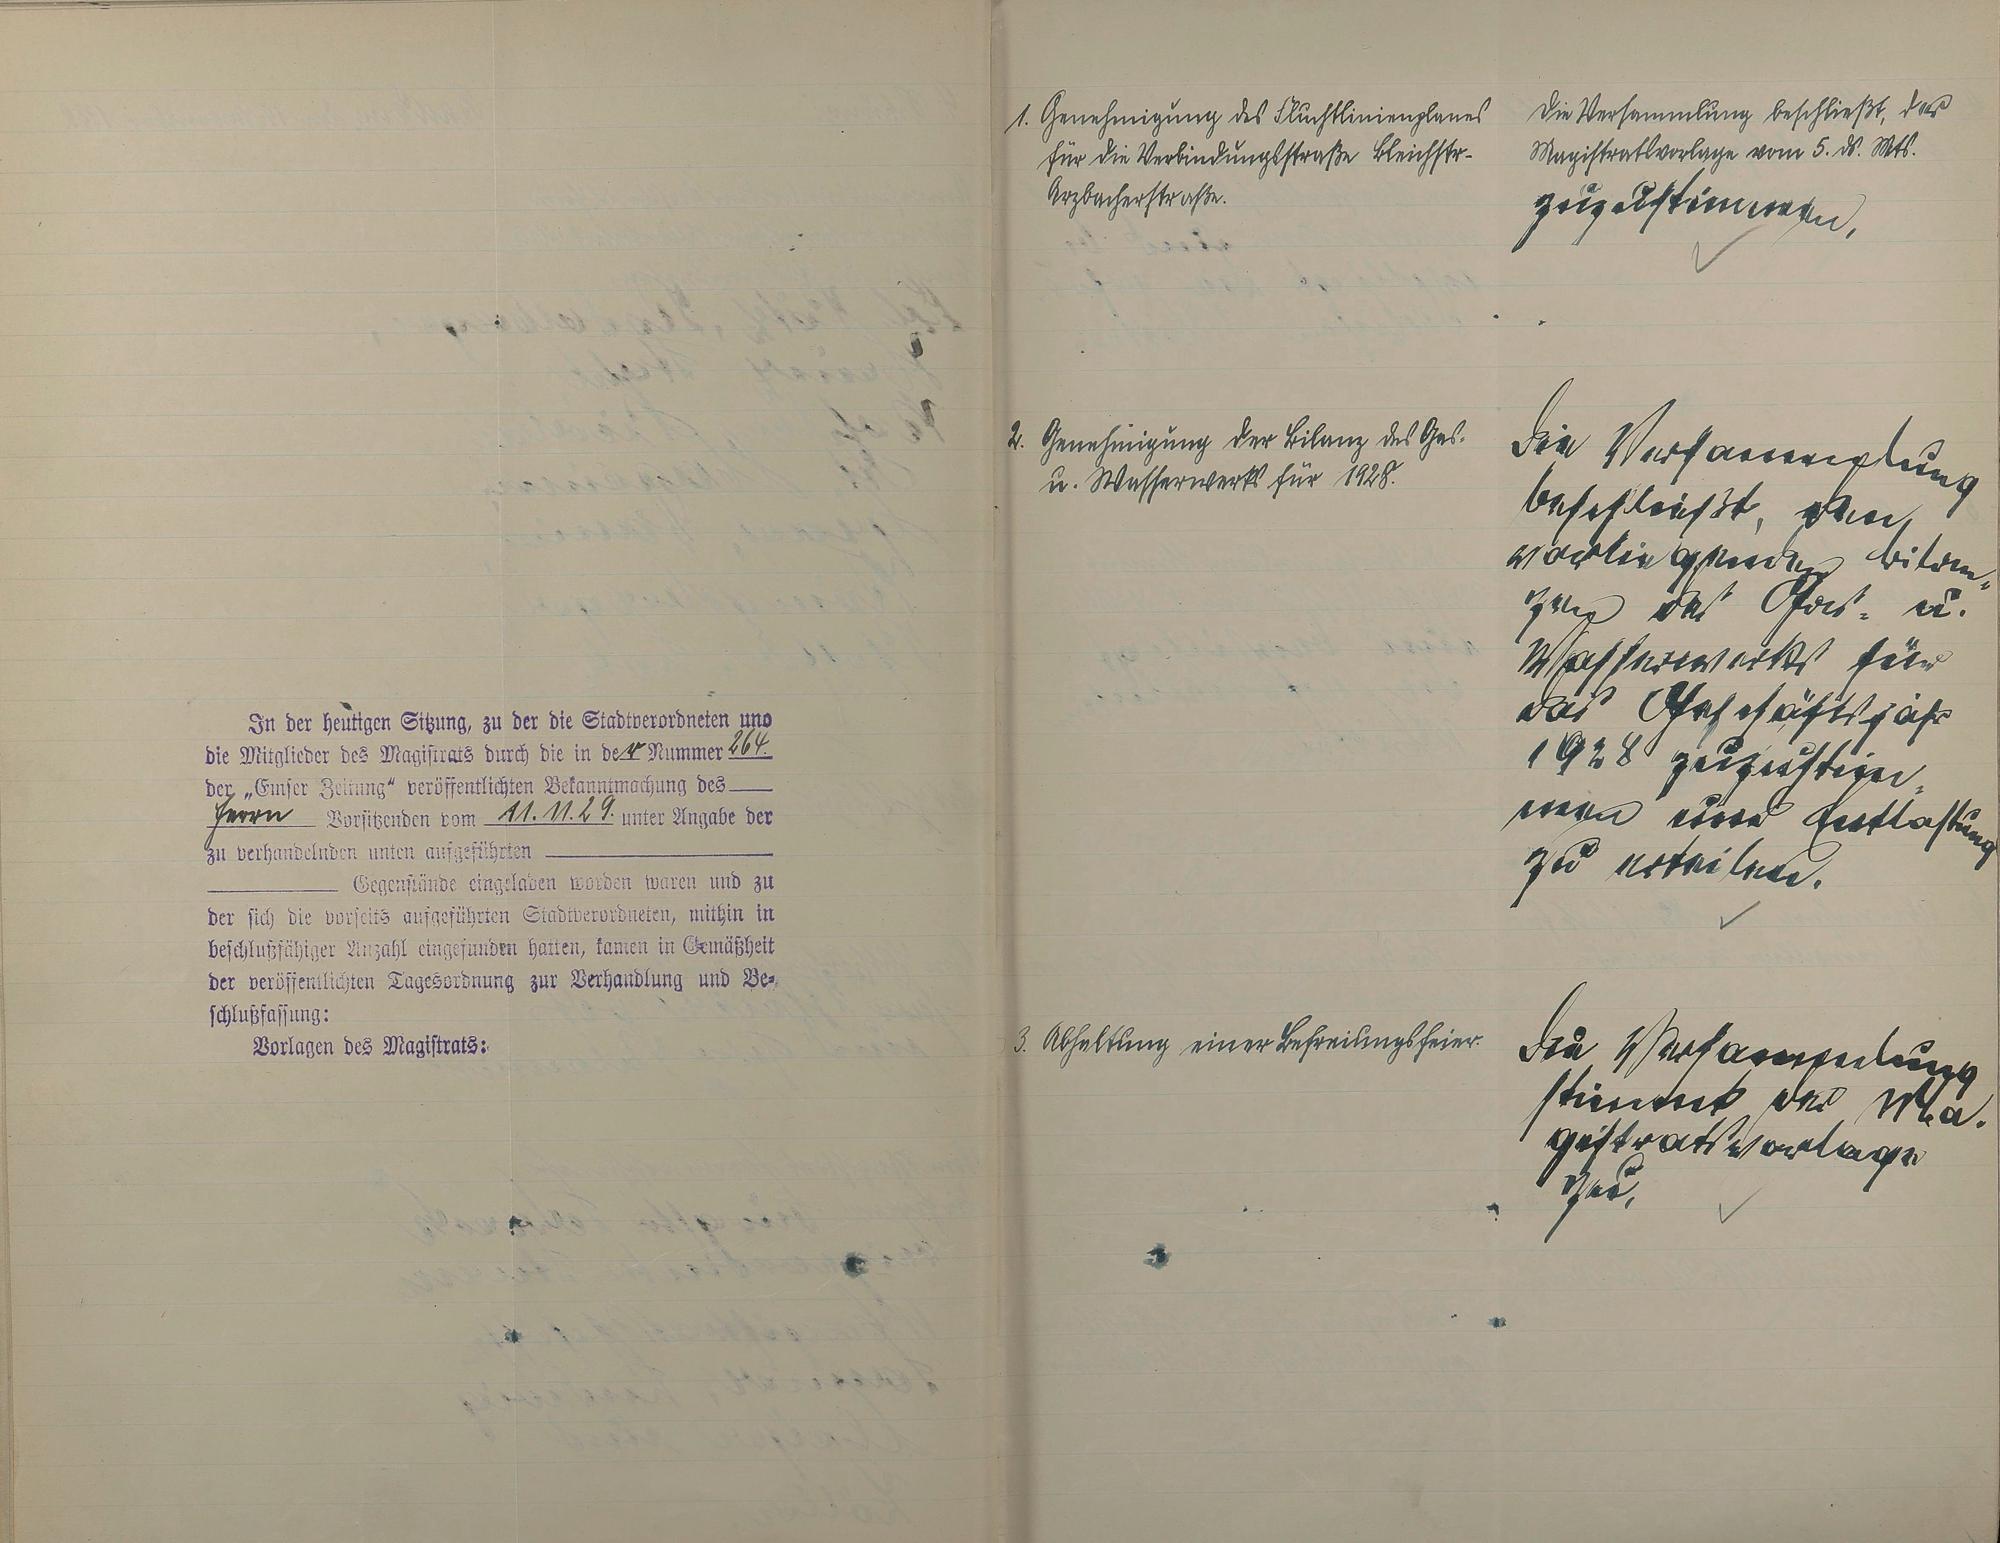 In der heutigen Sitzung, zu der die Stadtverordneten und
die Mitglieder des Magistrats durch die in der Nummer 264.
der „Emser Zeitung“ veröffentlichten Bekanntmachung des
Herrn Vorsitzenden vom 11.11.29. unter Angabe der
zu verhandelnden unten aufgeführten
Gegenstände eingeladen worden waren und zu
der sich die vorseits aufgeführten Stadtverordneten, mithin in
beschlußfähiger Anzahl eingefunden hatten, kamen in Gemäßheit
der veröffentlichten Tagesordnung zur Verhandlung und Be-
schlußfassung:
Vorlagen des Magistrats:
1. Genehmigung des Fluchtlinienplanes
für die Verbindungsstraße Bleichstr-
Arzbacherstraße.
Die Versammlung beschließt, der
Magistratsvorlage vom 5. ds. Mts.
zuzustimmen,
2. Genehmigung der Bilanz des Gas-
u. Wasserwerks für 1928.
Die Versammlung
beschließt, den
vorliegenden Bilan-
zen des Gas- u.
Wasserwerks für
das Geschäftsjahr
1928 zuzustim-
men und Entlastung
zu erteilen.
3. Abhaltung einer Befreiungsfeier.
Die Versammlung
stimmt der Ma-
gistratsvorlage
zu.